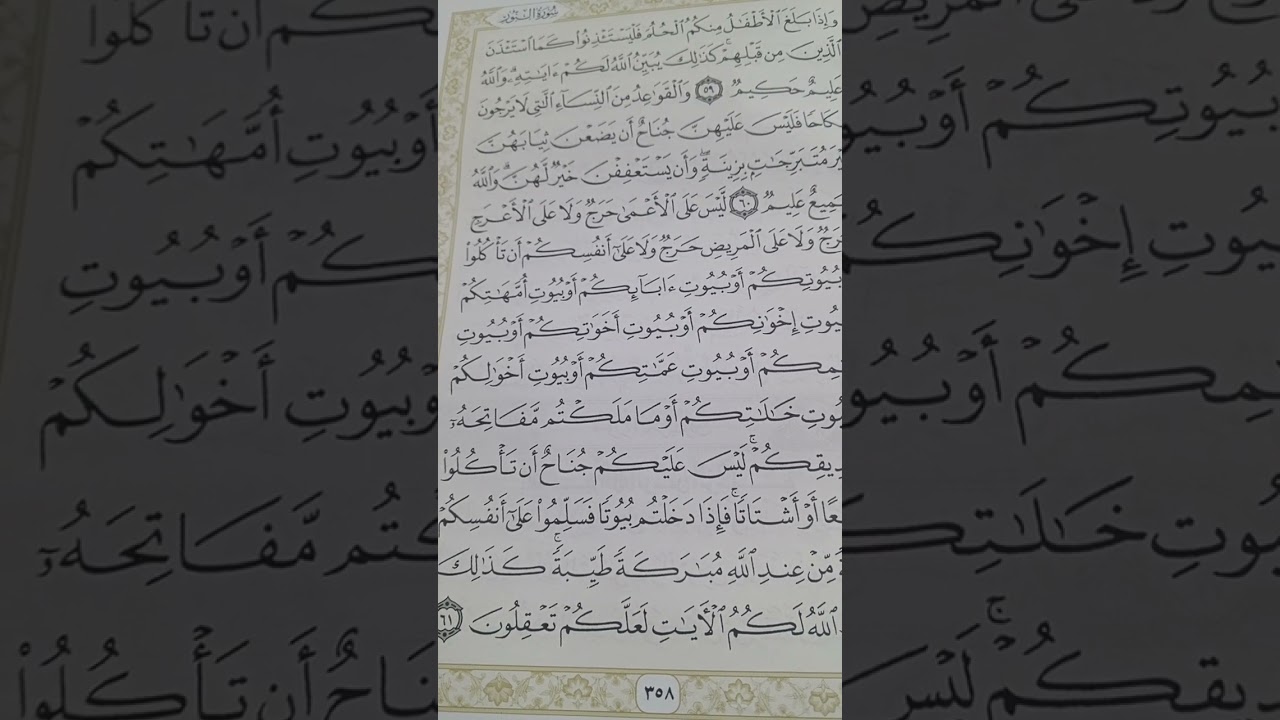 سُورَةُ النُّورِ
وَإِذَا بَلَغَ ٱلْأَطْفَٰلُ مِنكُمُ ٱلْحُلُمَ فَلْيَسْتَـْٔذِنُوا۟ كَمَا ٱسْتَـْٔذَنَ
ٱلَّذِينَ مِن قَبْلِهِمْ ۚ كَذَٰلِكَ يُبَيِّنُ ٱللَّهُ لَكُمْ ءَايَٰتِهِۦ ۗ وَٱللَّهُ
عَلِيمٌ حَكِيمٌ ٥٩ وَٱلْقَوَٰعِدُ مِنَ ٱلنِّسَآءِ ٱلَّٰتِى لَا يَرْجُونَ
كَاحًا فَلَيْسَ عَلَيْهِنَّ جُنَاحٌ أَن يَضَعْنَ ثِيَابَهُنَّ
يْرَ مُتَبَرِّجَٰتٍۭ بِزِينَةٍ ۖ وَأَن يَسْتَعْفِفْنَ خَيْرٌ لَّهُنَّ ۗ وَٱللَّهُ
مِيعٌ عَلِيمٌ ٦٠ لَّيْسَ عَلَى ٱلْأَعْمَىٰ حَرَجٌ وَلَا عَلَى ٱلْأَعْرَجِ
رَجٌ وَلَا عَلَى ٱلْمَرِيضِ حَرَجٌ وَلَا عَلَىٰٓ أَنفُسِكُمْ أَن تَأْكُلُوا۟
بُيُوتِكُمْ أَوْ بُيُوتِ ءَابَآئِكُمْ أَوْ بُيُوتِ أُمَّهَٰتِكُمْ
يُوتِ إِخْوَٰنِكُمْ أَوْ بُيُوتِ أَخَوَٰتِكُمْ أَوْ بُيُوتِ
مِكُمْ أَوْ بُيُوتِ عَمَّٰتِكُمْ أَوْ بُيُوتِ أَخْوَٰلِكُمْ
يُوتِ خَٰلَٰتِكُمْ أَوْ مَا مَلَكْتُم مَّفَاتِحَهُۥٓ
دِيقِكُمْ ۚ لَيْسَ عَلَيْكُمْ جُنَاحٌ أَن تَأْكُلُوا۟
عًا أَوْ أَشْتَاتًا ۚ فَإِذَا دَخَلْتُم بُيُوتًا فَسَلِّمُوا۟ عَلَىٰٓ أَنفُسِكُمْ
ةً مِّنْ عِندِ ٱللَّهِ مُبَٰرَكَةً طَيِّبَةً ۚ كَذَٰلِكَ
ٱللَّهُ لَكُمُ ٱلْءَايَٰتِ لَعَلَّكُمْ تَعْقِلُونَ ٦١
٣٥٨